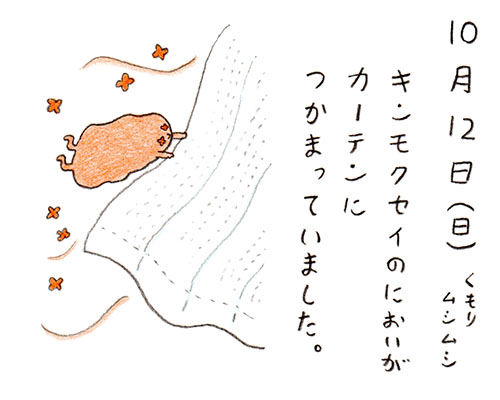 10月12日(日)くもり
ムシムシ
キンモクセイのにおいが
カーテンに
つかまっていました。